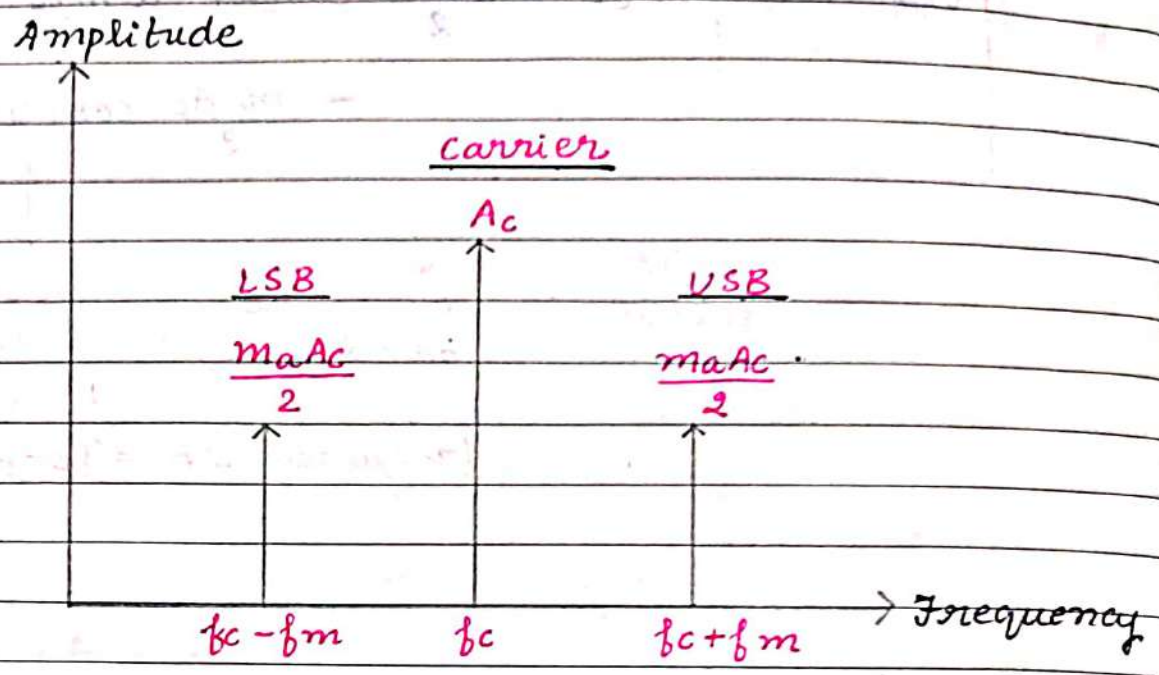 Amplitude
Carrier
Ac
LSB
USB
maAc
2
maAc
2
fc-fm
fc
fc+fm
Frequency